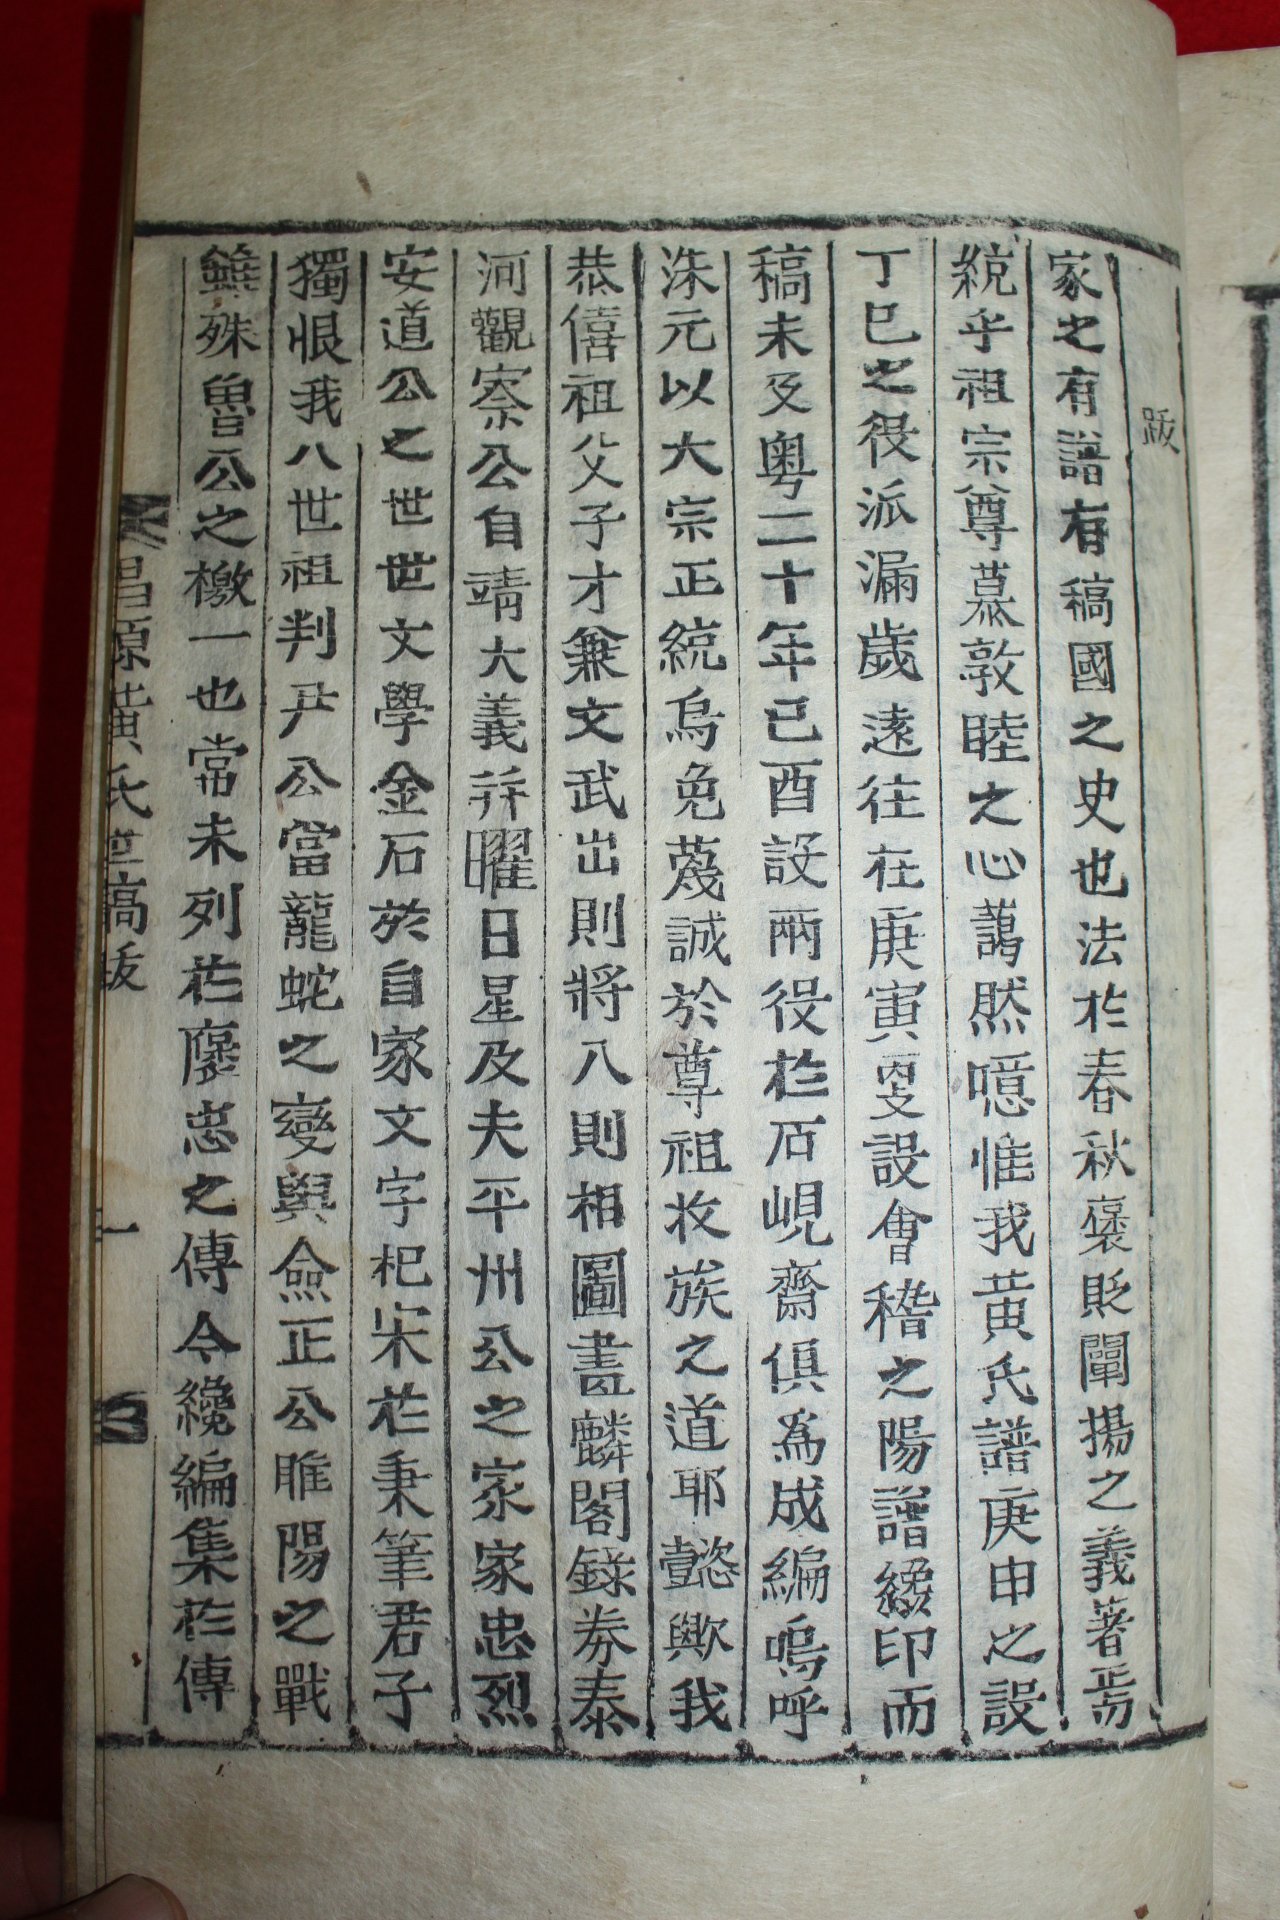 跋
家之有譜有稿國之史也法於春秋褒貶闡揚之義著焉
統乎祖宗尊慕敦睦之心藹然噫惟我黃氏譜庚申之設
丁巳之役派漏歲遠往在庚寅更設會稽之陽譜纔印而
稿未及粤二十年己酉設兩役於石峴齋俱爲成編嗚呼
洙元以大宗正統烏免蔑誠於尊祖收族之道耶懿歟我
恭僖祖父子才兼文武出則將入則相圖畫麟閣錄券泰
河觀察公自靖大義幷曜日星及夫平州公之家家忠烈
安道公之世世文學金石於自家文字杞宋於秉筆君子
獨恨我八世祖判尹公當龍蛇之變與僉正公睢陽之戰
雖殊魯公之檄一也常未列於褒忠之傳今纔編集於傳
昌原黃氏世稿跋
一